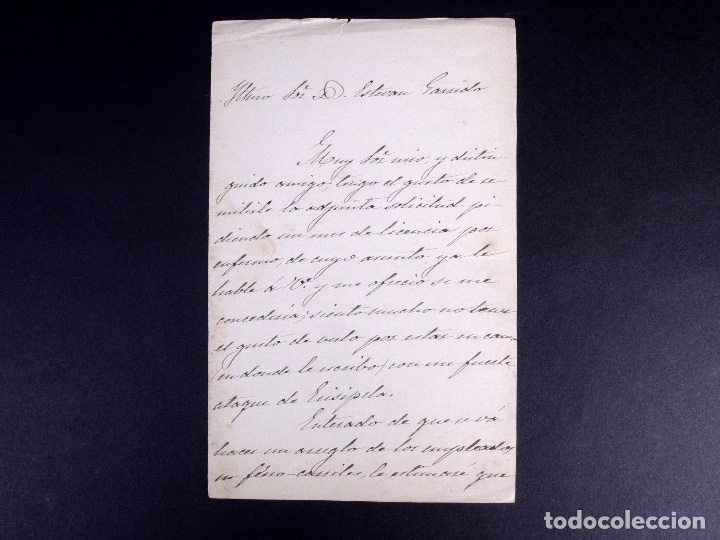 Yltmo Sor D. Estevan Garrido
Muy Sor mio y distin-
guido amigo, tengo el gusto de re
mitirle la adjunta solicitud pi-
diendo un mes de licencia por
enfermo, de cuyo asunto ya le
hablé á Vd. y me ofreció se me
concederia; siento mucho no tener
el gusto de verlo por estar en cama
(en donde le escribo) con un fuerte
ataque de Erisipela.
Enterado de que se vá
hacer un arreglo de los empleados
en ferro-carriles, le estimaré que
todocoleccion.net